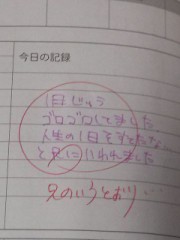 今日の記録
1日じゅう
ゴロゴロしてました
人生の1日をすてたな
と兄にいわれました
兄のいうとおり…